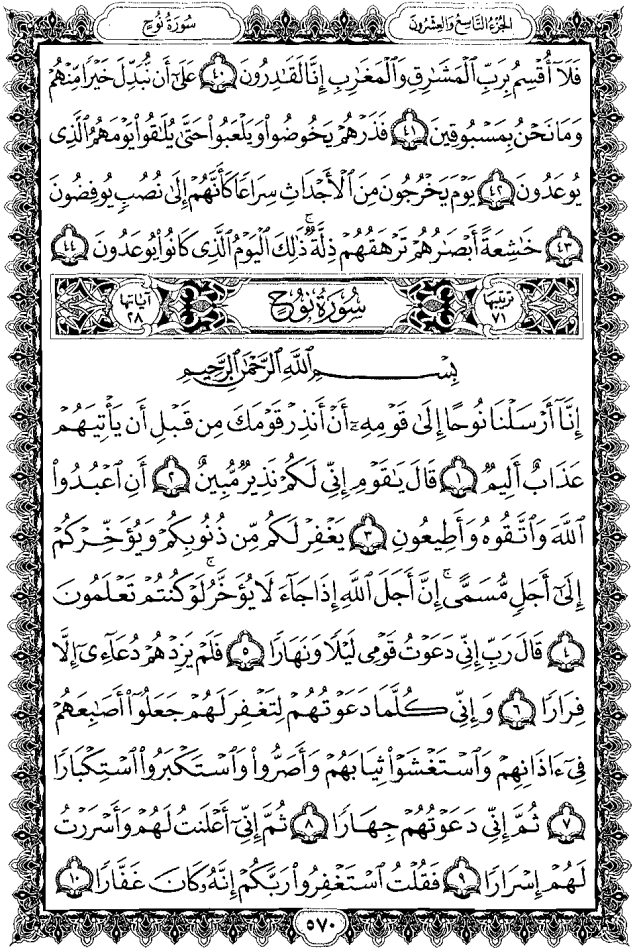 الجزء التاسع والعشرون
سورة نوح
فَلَآ أُقۡسِمُ بِرَبِّ ٱلۡمَشَٰرِقِ وَٱلۡمَغَٰرِبِ إِنَّا لَقَٰدِرُونَ ٤٠ عَلَىٰٓ أَن نُّبَدِّلَ خَيۡرٗا مِّنۡهُمۡ
وَمَا نَحۡنُ بِمَسۡبُوقِينَ ٤١ فَذَرۡهُمۡ يَخُوضُواْ وَيَلۡعَبُواْ حَتَّىٰ يُلَٰقُواْ يَوۡمَهُمُ ٱلَّذِي
يُوعَدُونَ ٤٢ يَوۡمَ يَخۡرُجُونَ مِنَ ٱلۡأَجۡدَاثِ سِرَاعٗا كَأَنَّهُمۡ إِلَىٰ نُصُبٖ يُوفِضُونَ
٤٣ خَٰشِعَةً أَبۡصَٰرُهُمۡ تَرۡهَقُهُمۡ ذِلَّةٞۚ ذَٰلِكَ ٱلۡيَوۡمُ ٱلَّذِي كَانُواْ يُوعَدُونَ ٤٤
ترتيبها ٧١ سُورَةُ نُوحٍ آياتها ٢٨
بِسۡمِ ٱللَّهِ ٱلرَّحۡمَٰنِ ٱلرَّحِيمِ
إِنَّآ أَرۡسَلۡنَا نُوحًا إِلَىٰ قَوۡمِهِۦٓ أَنۡ أَنذِرۡ قَوۡمَكَ مِن قَبۡلِ أَن يَأۡتِيَهُمۡ
عَذَابٌ أَلِيمٞ ١ قَالَ يَٰقَوۡمِ إِنِّي لَكُمۡ نَذِيرٞ مُّبِينٌ ٢ أَنِ ٱعۡبُدُواْ
ٱللَّهَ وَٱتَّقُوهُ وَأَطِيعُونِ ٣ يَغۡفِرۡ لَكُم مِّن ذُنُوبِكُمۡ وَيُؤَخِّرۡكُمۡ
إِلَىٰٓ أَجَلٖ مُّسَمًّىۚ إِنَّ أَجَلَ ٱللَّهِ إِذَا جَآءَ لَا يُؤَخَّرُۚ لَوۡ كُنتُمۡ تَعۡلَمُونَ
٤ قَالَ رَبِّ إِنِّي دَعَوۡتُ قَوۡمِي لَيۡلٗا وَنَهَارٗا ٥ فَلَمۡ يَزِدۡهُمۡ دُعَآءِيٓ إِلَّا
فِرَارٗا ٦ وَإِنِّي كُلَّمَا دَعَوۡتُهُمۡ لِتَغۡفِرَ لَهُمۡ جَعَلُوٓاْ أَصَٰبِعَهُمۡ
فِيٓ ءَاذَانِهِمۡ وَٱسۡتَغۡشَوۡاْ ثِيَابَهُمۡ وَأَصَرُّواْ وَٱسۡتَكۡبَرُواْ ٱسۡتِكۡبَارٗا
٧ ثُمَّ إِنِّي دَعَوۡتُهُمۡ جِهَارٗا ٨ ثُمَّ إِنِّيٓ أَعۡلَنتُ لَهُمۡ وَأَسۡرَرۡتُ
لَهُمۡ إِسۡرَارٗا ٩ فَقُلۡتُ ٱسۡتَغۡفِرُواْ رَبَّكُمۡ إِنَّهُۥ كَانَ غَفَّارٗا ١٠
٥٧٠